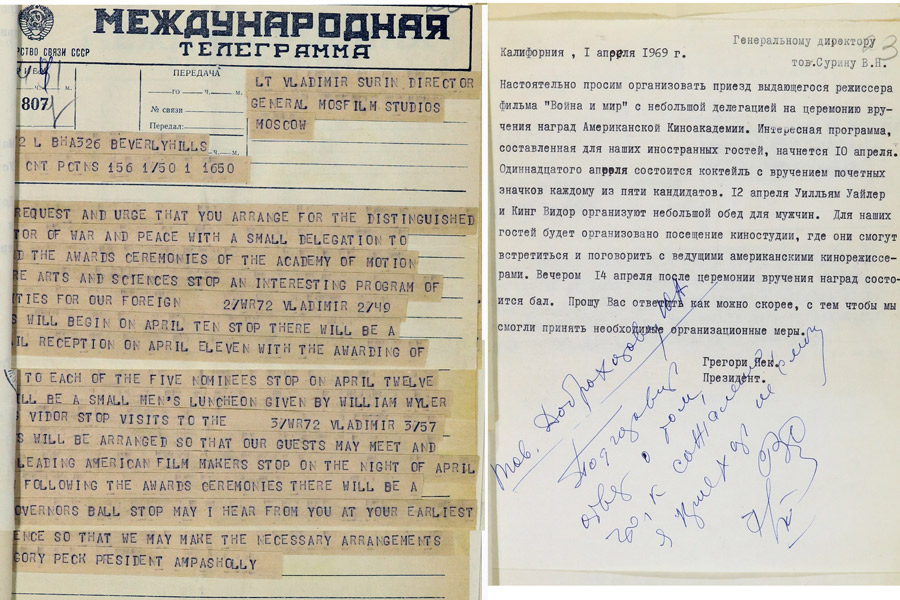 МЕЖДУНАРОДНАЯ
ТЕЛЕГРАММА
РСТВО СВЯЗИ СССР
ПЕРЕДАЧА
го ч. м.
№ связи
Передал:
ч. м.
807
LT VLADIMIR SURIN DIRECTOR
GENERAL MOSFILM STUDIOS
MOSCOW
2 L BHA326 BEVERLYHILLS
CNT PCTNS 156 1/50 1 1650
REQUEST AND URGE THAT YOU ARRANGE FOR THE DISTINGUISHED
TOR OF WAR AND PEACE WITH A SMALL DELEGATION TO
D THE AWARDS CEREMONIES OF THE ACADEMY OF MOTION
RE ARTS AND SCIENCES STOP AN INTERESTING PROGRAM OF
TIES FOR OUR FOREIGN 2/WR72 VLADIMIR 2/49
S WILL BEGIN ON APRIL TEN STOP THERE WILL BE A
IL RECEPTION ON APRIL ELEVEN WITH THE AWARDING OF
TO EACH OF THE FIVE NOMINEES STOP ON APRIL TWELVE
LL BE A SMALL MEN'S LUNCHEON GIVEN BY WILLIAM WYLER
VIDOR STOP VISITS TO THE 3/WR72 VLADIMIR 3/57
S WILL BE ARRANGED SO THAT OUR GUESTS MAY MEET AND
LEADING AMERICAN FILM MAKERS STOP ON THE NIGHT OF APRIL
FOLLOWING THE AWARDS CEREMONIES THERE WILL BE A
OVERNORS BALL STOP MAY I HEAR FROM YOU AT YOUR EARLIEST
ENCE SO THAT WE MAY MAKE THE NECESSARY ARRANGEMENTS
GORY PECK PRESIDENT AMPASHOLLY
23
Генеральному директору
тов.Сурину В.Н.
Калифорния , I апреля 1969 г.
Настоятельно просим организовать приезд выдающегося режиссера
фильма "Война и мир" с небольшой делегацией на церемонию вру-
чения наград Американской Киноакадемии. Интересная программа,
составленная для наших иностранных гостей, начнется IO апреля.
Одиннадцатого апреля состоится коктейль с вручением почетных
значков каждому из пяти кандидатов. I2 апреля Уилльям Уайлер
и Кинг Видор организуют небольшой обед для мужчин. Для наших
гостей будет организовано посещение киностудии, где они смогут
встретиться и поговорить с ведущими американскими кинорежиссе-
рами. Вечером I4 апреля после церемонии вручения наград состо-
ится бал. Прошу Вас ответить как можно скорее, с тем чтобы мы
смогли принять необходимые организационные меры.
Грегори Пек.
Президент.
тов.
о том,
к сожалению,
я
не